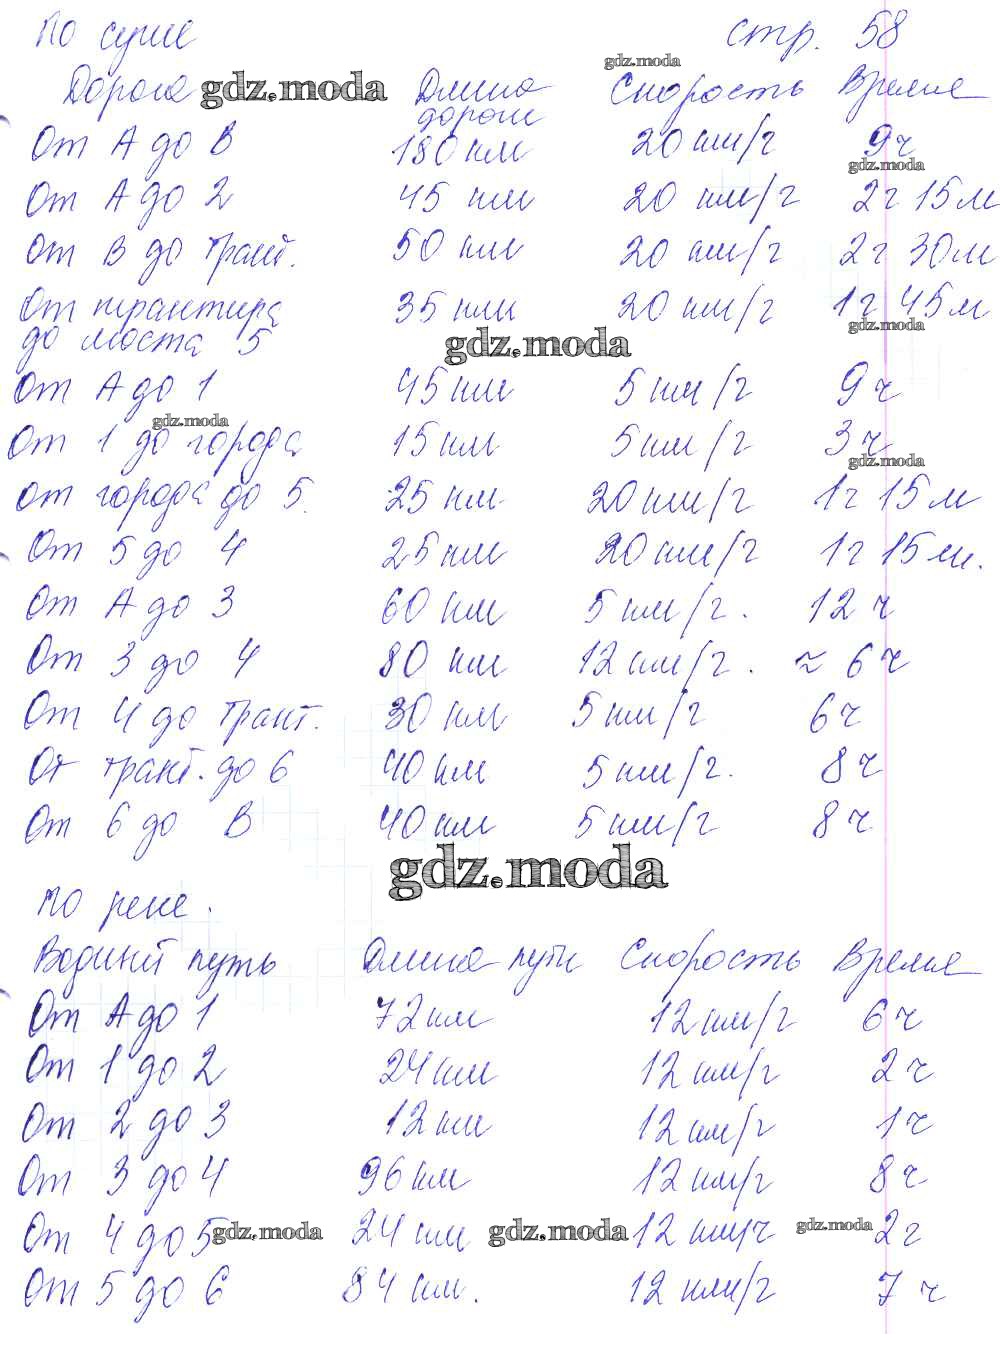 По суше стр. 58
gdz.moda
Дорога gdz.moda Длина дороги Скорость Время
От А до В 180 км 20 км/г 9 ч
gdz.moda
От А до 2 45 км 20 км/г 2 г 15 м
От В до тракт. 50 км 20 км/г 2 г 30 м
От трактира до моста 5 35 км 20 км/г 1 г 45 м
gdz.moda gdz.moda
От А до 1 45 км 5 км/г 9 ч
gdz.moda
От 1 до города 15 км 5 км/г 3 ч
gdz.moda
от города до 5. 25 км 20 км/г 1 г 15 м
От 5 до 4 25 км 20 км/г 1 г 15 м.
От А до 3 60 км 5 км/г. 12 ч
От 3 до 4 80 км 12 км/г. ≈ 6 ч
От 4 до тракт. 30 км 5 км/г 6 ч
От тракт. до 6 40 км 5 км/г. 8 ч
От 6 до В 40 км 5 км/г 8 ч
gdz.moda
По реке.
Водный путь Длина пути Скорость Время
От А до 1 72 км 12 км/г 6 ч
От 1 до 2 24 км 12 км/г 2 ч
От 2 до 3 12 км 12 км/г 1 ч
От 3 до 4 96 км 12 км/г 8 ч
От 4 до 5 gdz.moda 24 км gdz.moda 12 км/ч gdz.moda 2 г
От 5 до 6 84 км. 12 км/г 7 ч